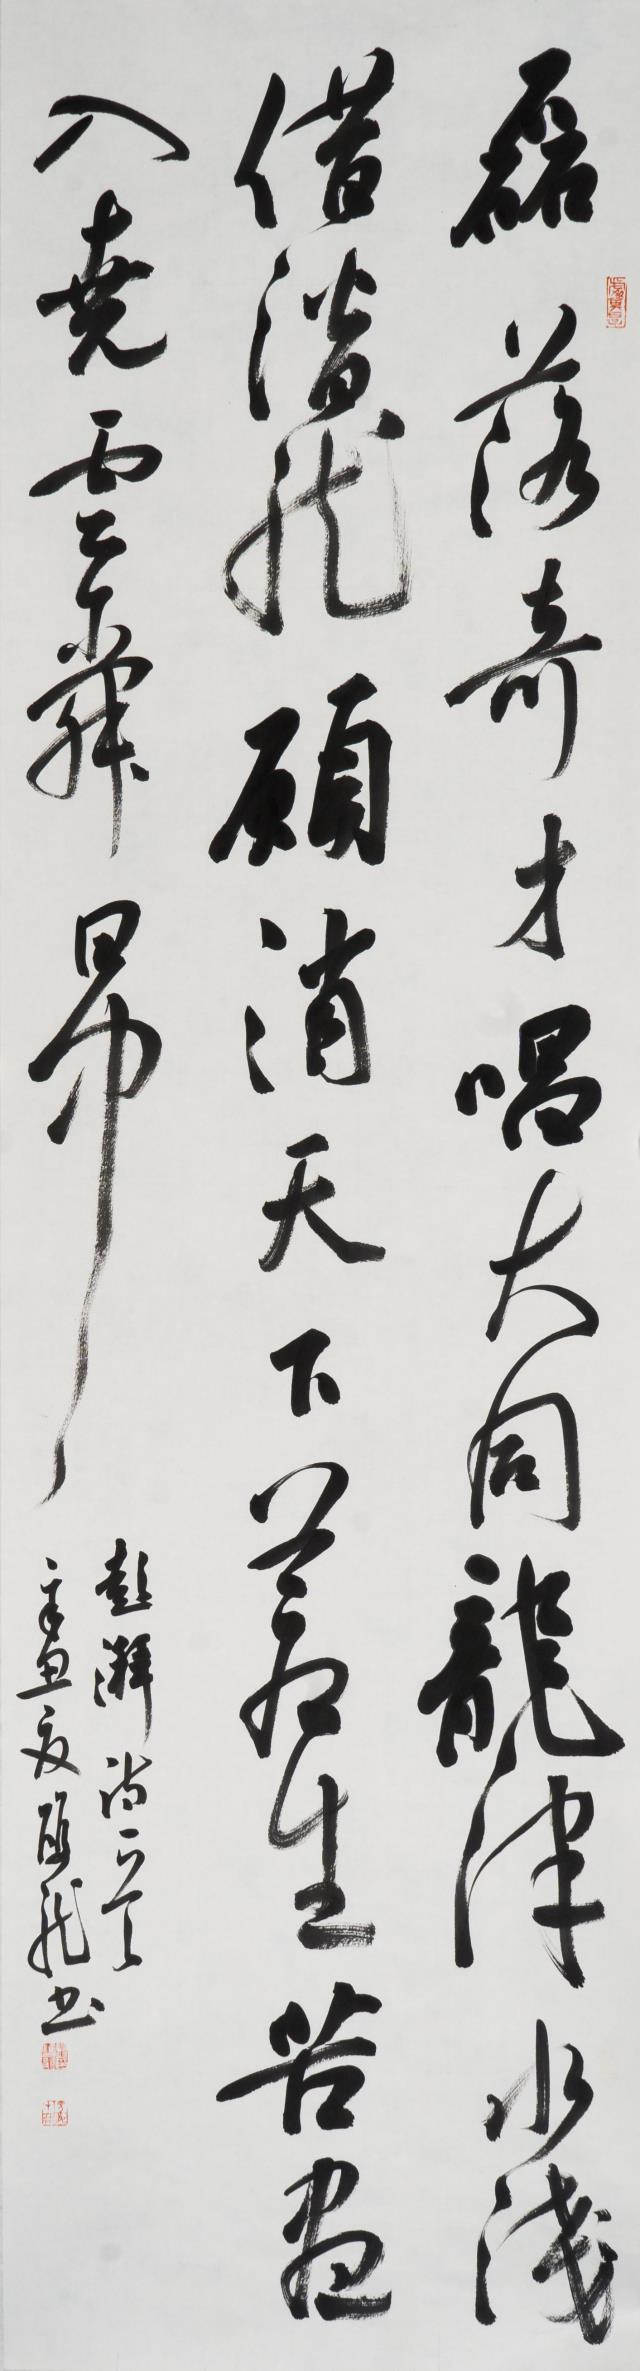 磊落奇才唱大同龍津水淺
借潛龍願消天下蒼生苦盡
入堯雲舜日中
彭湃詩一首
辛丑夏龍書